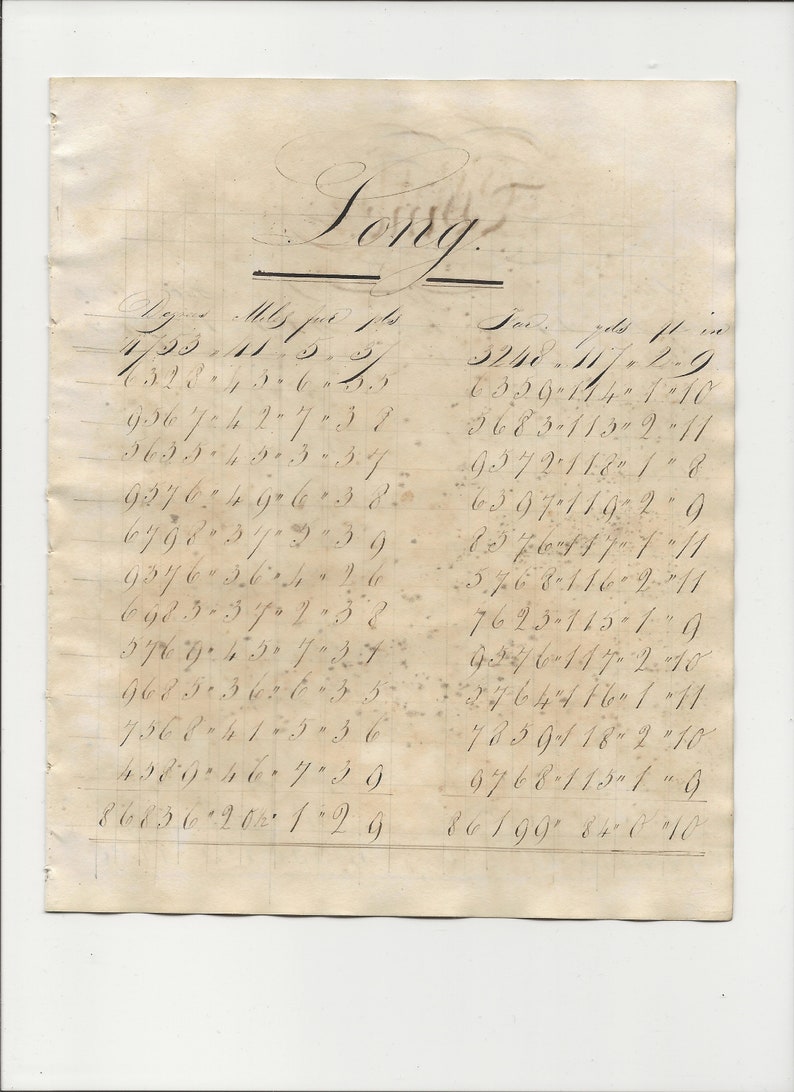 Long.
Degrees Miles fur pls Fur. yds ft in
4753 " 41 " 5 " 37 3248 " 117 " 2 " 9
6328 " 43 " 6 " 35 6359 " 114 " 1 " 10
9567 " 42 " 7 " 38 5683 " 113 " 2 " 11
5635 " 45 " 3 " 37 9572 " 118 " 1 " 8
9576 " 49 " 6 " 38 6397 " 119 " 2 " 9
6798 " 37 " 5 " 39 8576 " 117 " 1 " 11
9376 " 36 " 4 " 26 5768 " 116 " 2 " 11
6983 " 37 " 2 " 38 7623 " 115 " 1 " 9
5769 " 45 " 7 " 31 9576 " 117 " 2 " 10
9685 " 36 " 6 " 35 5764 " 116 " 1 " 11
7568 " 41 " 5 " 36 7859 " 118 " 2 " 10
4589 " 46 " 7 " 39 9768 " 115 " 1 " 9
86836 " 20½ " 1 " 29 86199 " 84 " 0 " 10